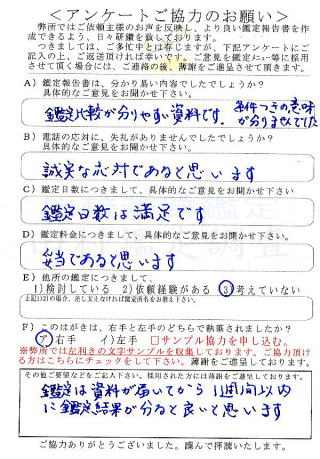 ＜アンケートご協力のお願い＞
弊所ではご依頼主様のお声を反映し、より良い鑑定報告書を作
成できるよう、日々研鑽を致しております。
つきましては、ご多忙中とは存じますが、下記アンケートにご
記入の上、ご返送頂ければ幸いです。ご意見を鑑定ﾒﾆｭｰ等に採用
させて頂く場合には、ご連絡の後、薄謝をご進呈させて頂きます。
A）鑑定報告書は、分かり易い内容でしたでしょうか？
具体的なご意見をお聞かせ下さい。
鑑定比較が分りやすい資料です。
条件つきの意味
が分りませんでした
B）電話の応対に、失礼がありませんでしたでしょうか？
具体的なご意見をお聞かせ下さい。
誠実な応対であると思います
C）鑑定日数につきまして、具体的なご意見をお聞かせ下さい
鑑定日数は満足です
D）鑑定料金につきまして、具体的なご意見をお聞かせ下さい。
妥当であると思います
E）他所の鑑定につきまして、
1)検討している 2)依頼経験がある 3)考えていない
上記1)2)の場合、差し支えなければ鑑定所名をお教え下さい。
F）このはがきは、右手と左手のどちらで執筆されましたか？
ア)右手 イ)左手 □サンプル協力を申し込む。
※弊所では左利きの文字サンプルを収集しております。ご協力頂け
る方はこちらにチェックをして下さい。薄謝をご進呈しております。
その他ご要望などをご記入下さい。採用された方には薄謝をご進呈しております。
鑑定は資料が届いてから1週間以内
に鑑定結果が分ると良いと思います
ご協力ありがとうございました。謹んで拝読いたします。